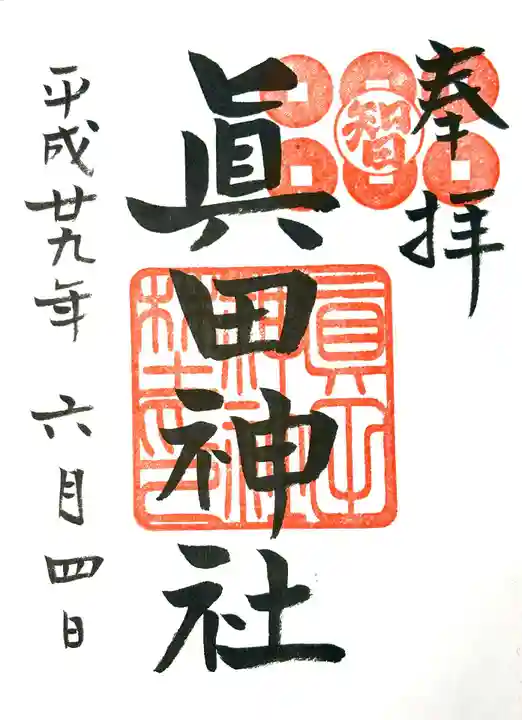 奉拝
智
眞田神社
平成廿九年 六月四日